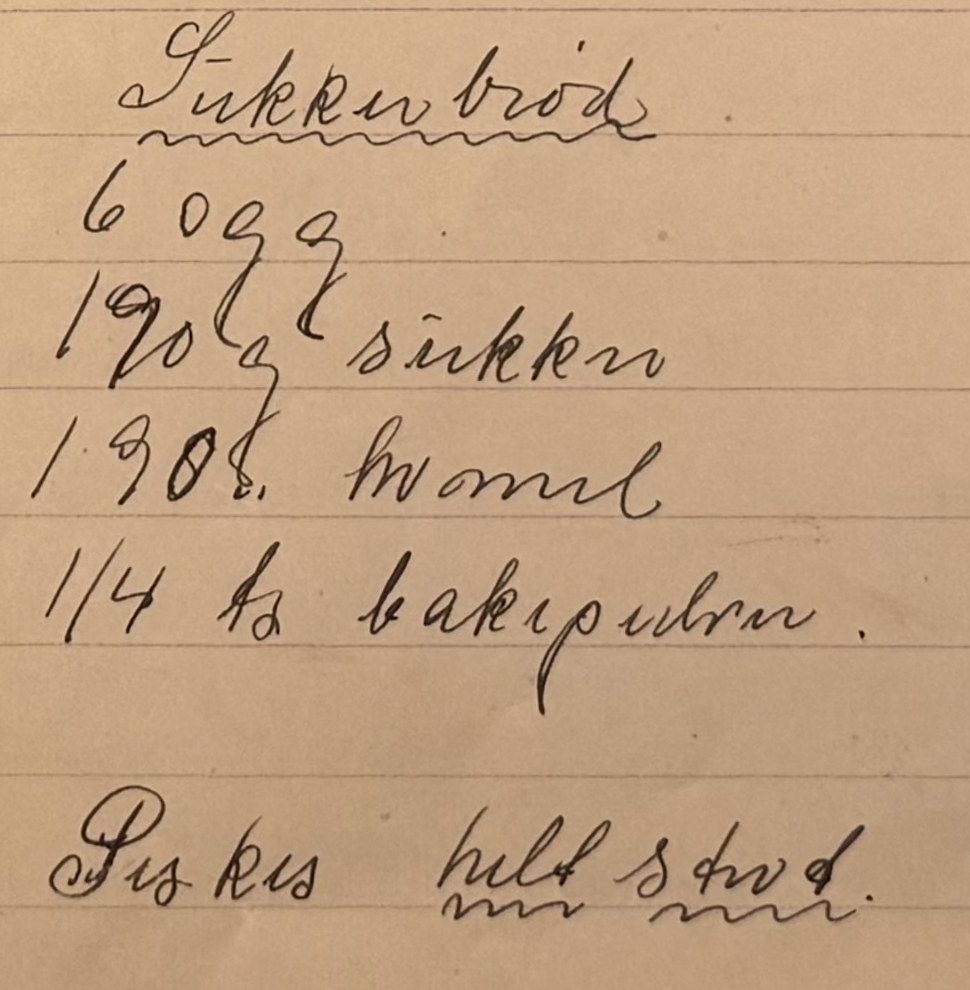 Sukkerbrød
6 egg
190 g sukker
190 g. hvemel
1/4 ts bakepulver.
Piskes helt stivt.